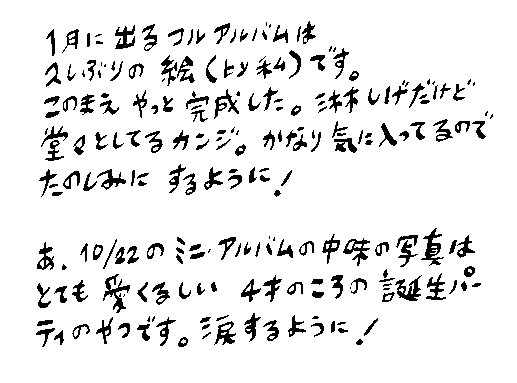 1月に出るフルアルバムは
久しぶりの絵(by私)です。
このまえやっと完成した。淋しげだけど
堂々としてるカンジ。かなり気に入ってるので
たのしみにするように!
あ、10/22のミニ・アルバムの中味の写真は
とても愛くるしい4才のころの誕生パー
ティのやつです。涙するように!